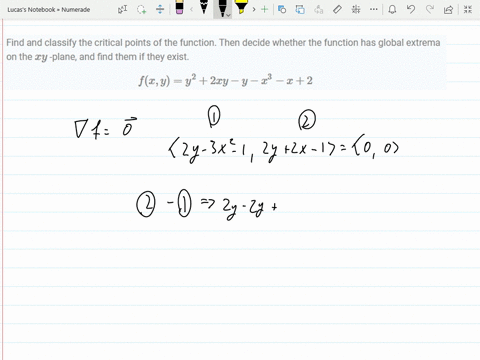 Lucas's Notebook + Numerade
Find and classify the critical points of the function. Then decide whether the function has global extrema
on the xy -plane, and find them if they exist.
f(x, y) = y² + 2xy − y − x³ − x + 2
① ②
∇f = 0⃗
⟨2y-3x²-1, 2y+2x-1⟩ = ⟨0, 0⟩
② - ① => 2y-2y +